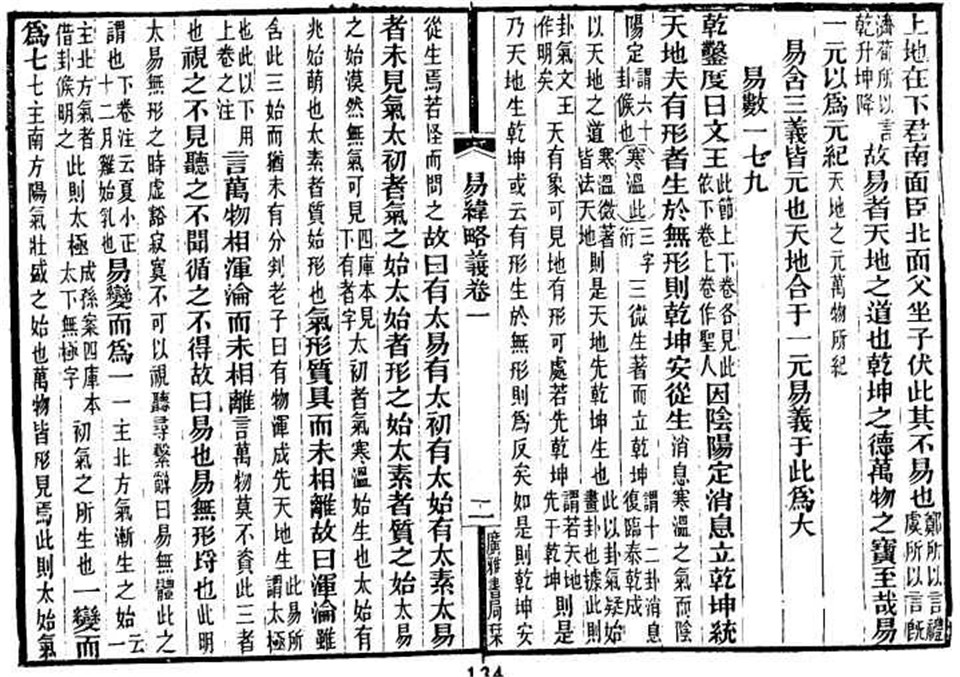 上地在下君南面臣北面父坐子伏此其不易也鄭所以言禮虞所以言旣
濟荀所以言乾升坤降故易者天地之道也乾坤之德萬物之寶至哉易
一元以爲元紀天地之元萬物所紀
易含三義皆元也天地合于一元易義于此爲大
易數一七九
乾鑿度曰文王此節上下卷各見此依下卷上卷作聖人因陰陽定消息立乾坤統
天地夫有形者生於無形則乾坤安從生消息寒溫之氣而陰
陽定謂六十卦候也寒溫此三字衍三微生著而立乾坤謂十二卦消息復臨泰乾成
以天地之道寒溫微著皆法天地則是天地先乾坤生也此以卦氣疑始畫卦也據此則
卦氣文王作明矣天有象可見地有形可處若先乾坤謂若天地先于乾坤則是
乃天地生乾坤或云有形生於無形則爲反矣如是則乾坤安
易緯略義卷一
二
廣雅書局栞
從生焉若怪而問之故曰有太易有太初有太始有太素太易
者未見氣太初者氣之始太始者形之始太素者質之始太易
之始漠然無氣可見四庫本見下有者字太初者氣寒溫始生也太始有
兆始萌也太素者質始形也氣形質具而未相離故曰渾淪雖
含此三始而猶未有分判老子曰有物渾成先天地生此易所謂太極
也此以下用上卷之注言萬物相渾淪而未相離言萬物莫不資此三者
也視之不見聽之不聞循之不得故曰易也易無形埒也此明
太易無形之時虛豁寂寞不可以視聽尋繫辭曰易無體此之
謂也下卷注云夏小正十二月雞始乳也易變而爲一一主北方氣漸生之始云
主北方氣者借卦候明之此則太極成孫案四庫本太下無極字初氣之所生也一變而
爲七七主南方陽氣壯盛之始也萬物皆形見焉此則太始氣
134